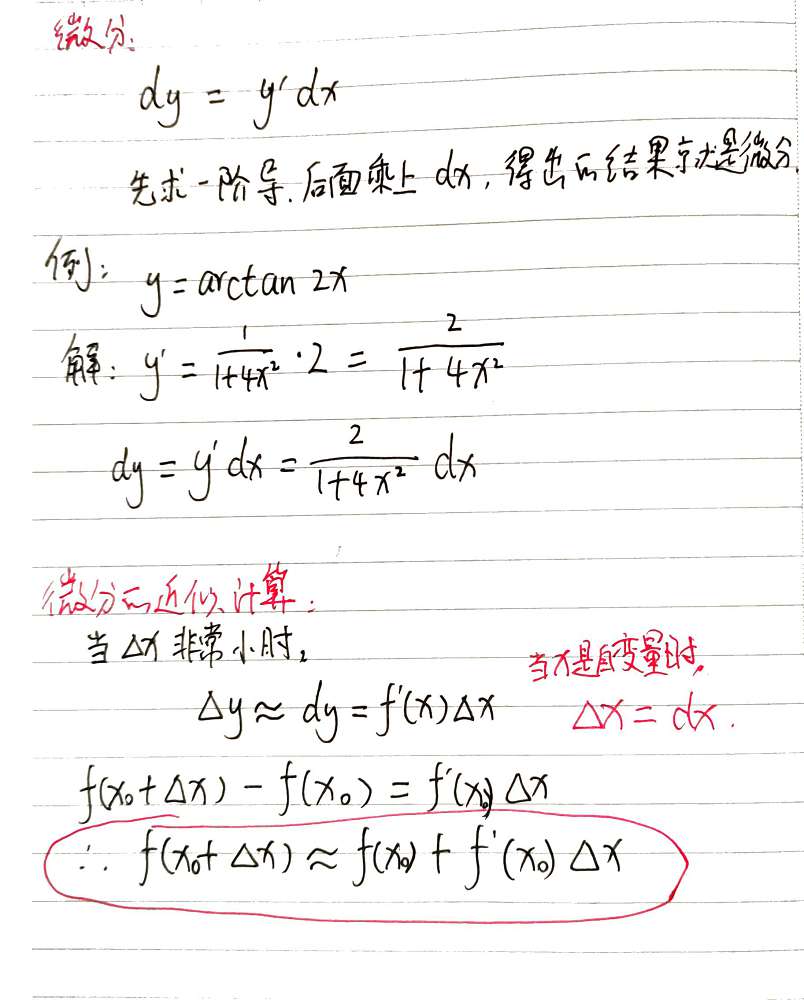 微分:
dy = y'dx
先求一阶导.后面乘上 dx, 得出的结果就是微分.
例: y = arctan 2x
解: y' = 1/(1+4x²) · 2 = 2/(1+4x²)
dy = y'dx = 2/(1+4x²) dx
微分的近似计算:
当 Δx 非常小时,
当x是自变量时,
Δy ≈ dy = f'(x)Δx
Δx = dx.
f(x₀+Δx) - f(x₀) = f'(x₀)Δx
∴ f(x₀+Δx) ≈ f(x₀) + f'(x₀)Δx